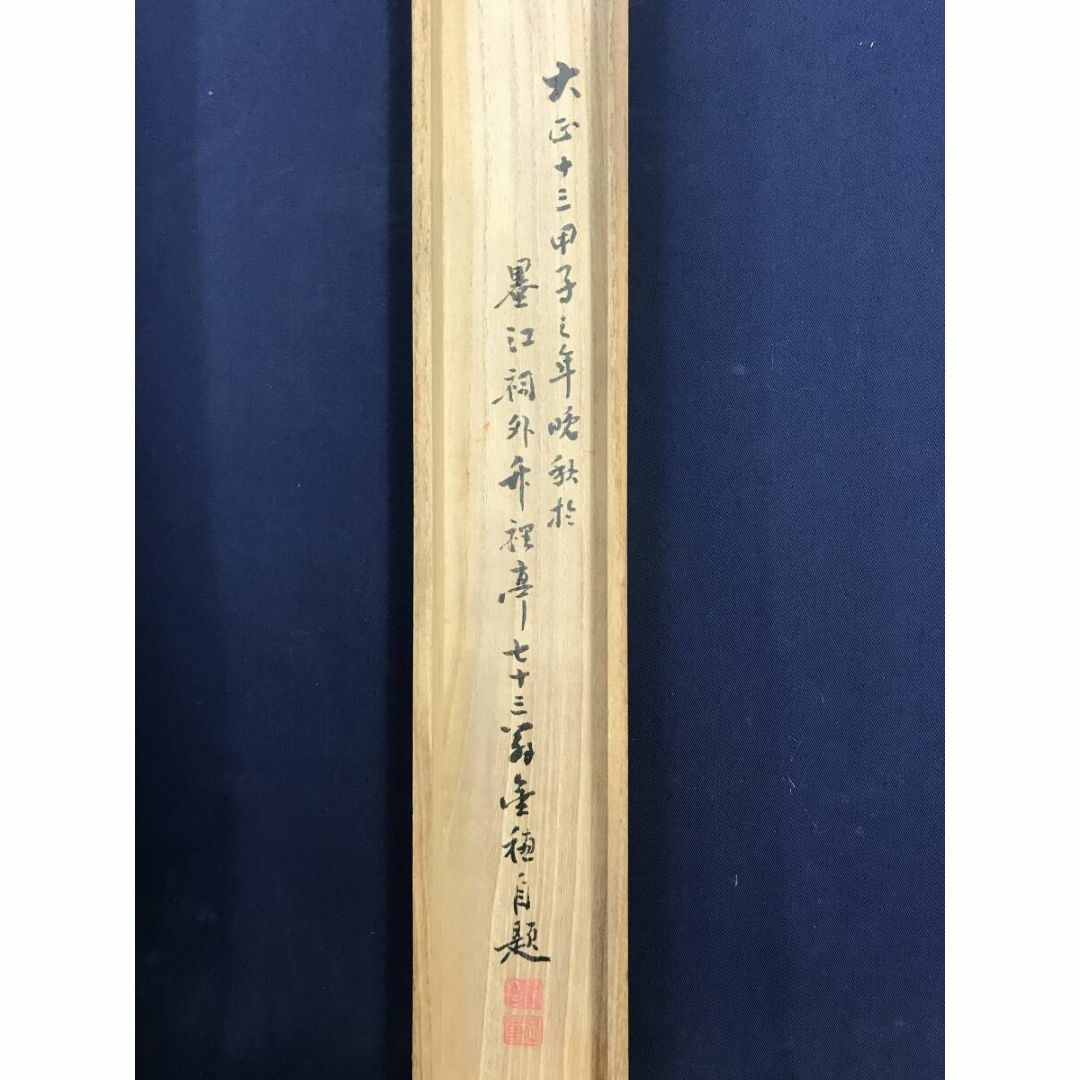 大正十三甲子之年晩秋於
墨江祠外竹裡亭七十三翁金穂自題